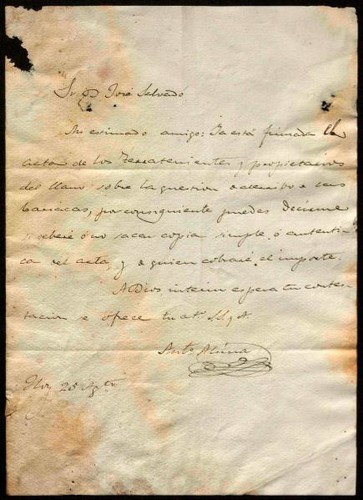 Sr. D. José Salvado
Mi estimado amigo: Ya está firmada el
acta de los Terratenientes y propietarios
del llano sobre la question a
barracas, por consiguiente puedes decirme
si deberé ó no sacar copia simple ó autenti
ca del acta, y a quien cobraré el importe.
A Dios interin espera tu contes
tacion
Hoy 28